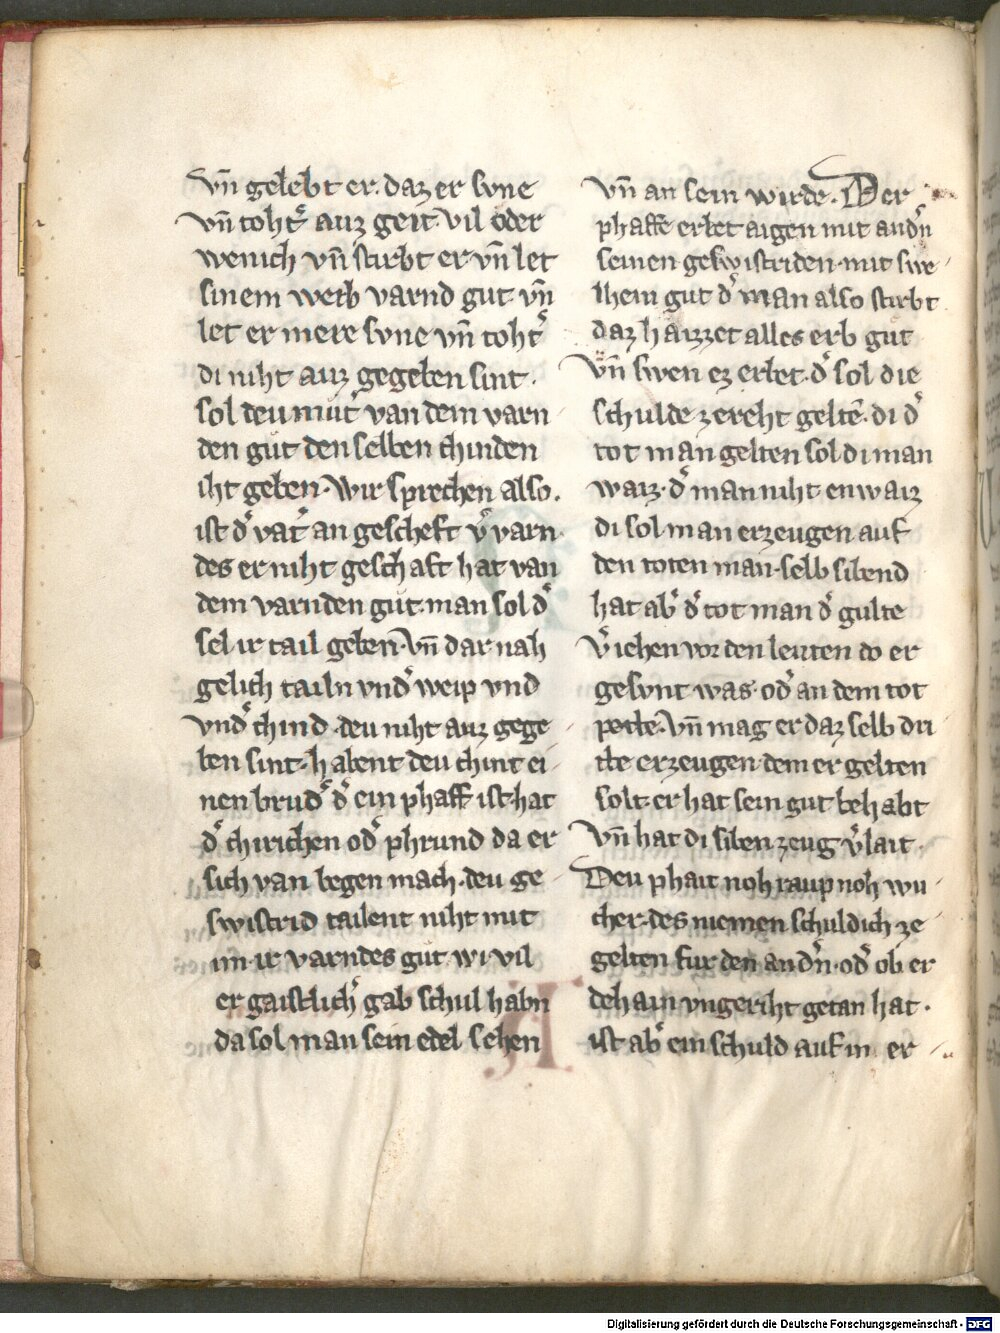 vn̄ gelebt er. daz er svne
vn̄ tohtˀ auz geit vil oder
wenich vn̄ stirbt er vn̄ let
sinem weib varnd gut. vn̄
let er mere svne vn̄ tohtˀ
di niht auz gegeben sint.
sol deu mutˀ van dem varn
den gut den selben chinden
iht geben. Wir sprechen also.
ist dˀ vatˀ an gescheft vˀvarn.
des er niht geschaft hat van
dem varnden gut. man sol dˀ
sel ir tail geben. vn̄ dar nah
gelich tailn vndˀ weip vnd
vndˀ chind. deu niht auz gege
ben sint. habent deu chint ei
nen brudˀ dˀ ein phaff ist. hat
dˀ chirichen odˀ phrund da er
sich van began mach. deu ge
swistrid tailent niht mit
im. ir varndes gut. wi vil
er gaistlichˀ gab schul habn
da sol man sein edel sehen
vn̄ an sein wirde. Der
phaffe erbet aigen mit andˀn
seinen geswistriden. mit swe
lhem gut dˀ man also stirbt
daz haizzet alles erb gut
vn̄ swen ez erbet. dˀ sol die
schulde zereht geltē. di dˀ
tot man gelten sol di man
waiz. dˀ man niht enwaiz
di sol man erzeugen auf
den toten man. selb sibend
hat abˀ dˀ tot man dˀ gulte
vˀiehen vor den leuten do er
gesvnt was. odˀ an dem tot
pette. vn̄ mag er daz selb dri
tte erzeugen. dem er gelten
solt. er hat sein gut behabt
vn̄ hat di siben zeug vˀlait.
Deu phait noh raup noh wu
cher. des niemen schuldich ze
gelten fur den andˀn. odˀ ob er
dehain vngeriht getan hat.
ist abˀ ein schuld auf in er
Digitalisierung gefördert durch die Deutsche Forschungsgemeinschaft - DFG